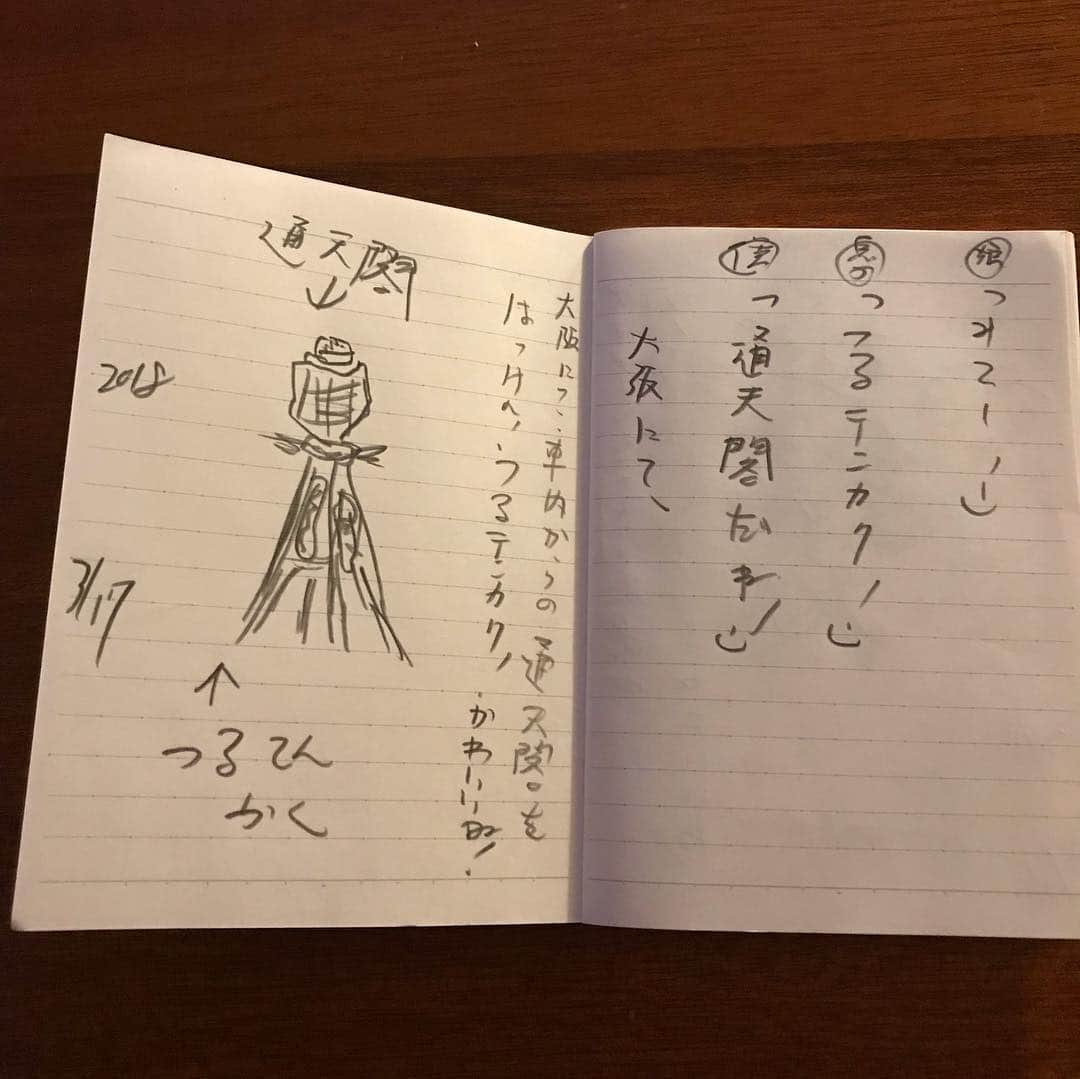 娘「みてー！」
息子「つるテンカク！」
「通天閣だね！」
大阪にて、
大阪にて、車内からの通天閣を
はっけん、つるテンカク！かわいいね！
通天閣
↓
2018
3/17
↑
つるてん
かく